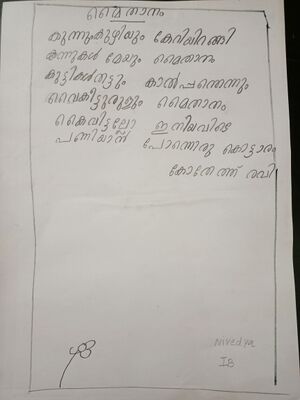 മൈതാനം
കുന്നുംകുഴിയും കേറിയിറങ്ങി
കന്നുകൾ മേയും മൈതാനം
കുട്ടികൾതട്ടും കാൽപ്പന്തെന്നും
വൈകീട്ടുരുളും മൈതാനം
കൈവിട്ടല്ലോ ഇനിയവിടെ
പണിയാൻ പോന്നൊരു കൊട്ടാരം
രവി
Nivedya
IB